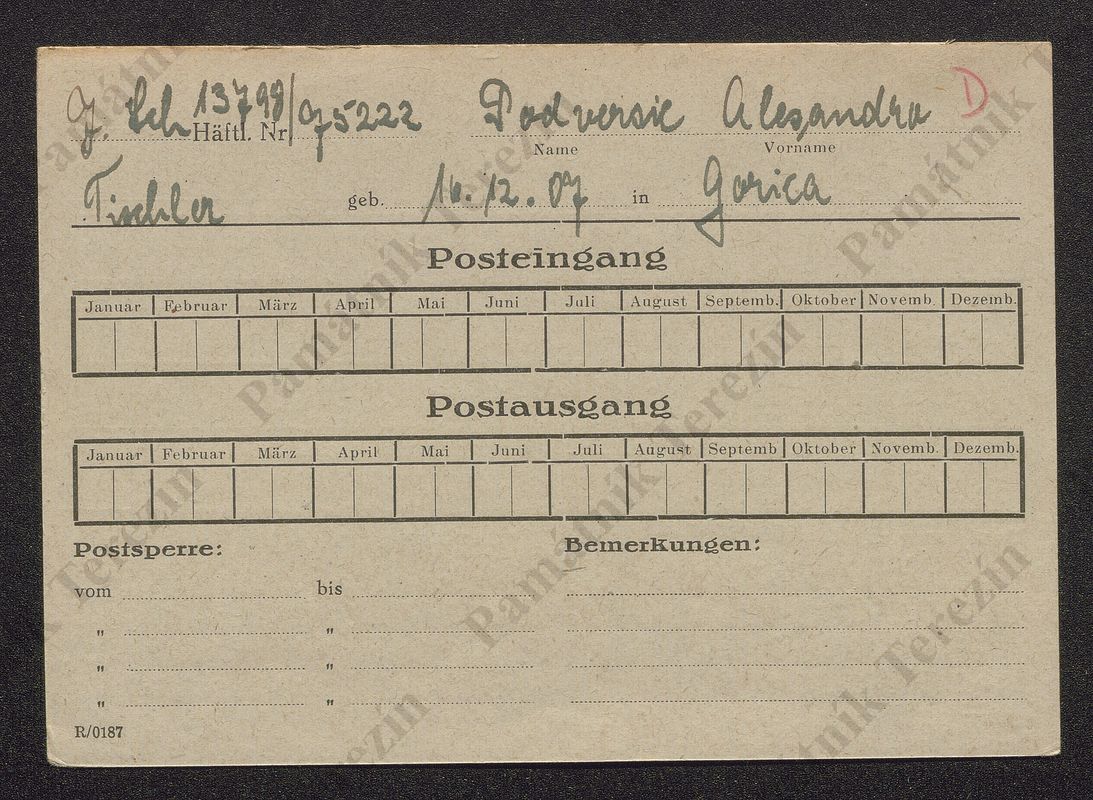 J. Sch 13798/75222 Podversic Alexandro D
Häftl. Nr. Name Vorname
Tischler geb. 16. 12. 07 in Gorica
Posteingang
Januar Februar März April Mai Juni Juli August Septemb. Oktober Novemb. Dezemb.
Postausgang
Januar Februar März April Mai Juni Juli August Septemb. Oktober Novemb. Dezemb.
Postsperre: Bemerkungen:
vom bis
" "
" "
" "
R/0187
Památník Terezín